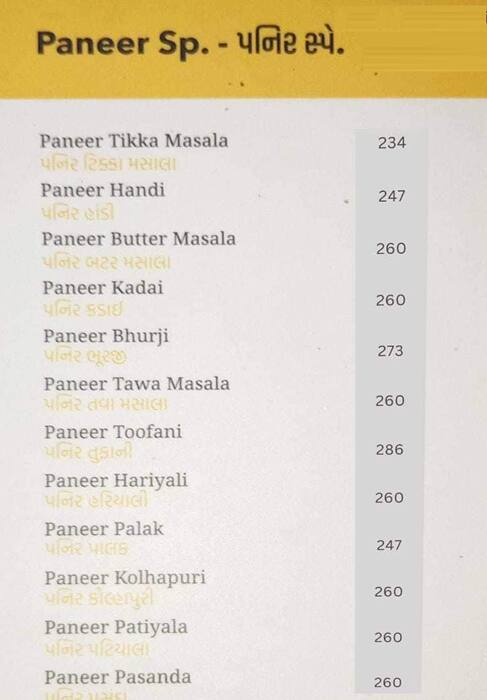 Paneer Sp. - પનિર સ્પે.
Paneer Tikka Masala 234
પનિર ટિક્કા મસાલા
Paneer Handi 247
પનિર હાંડી
Paneer Butter Masala 260
પનિર બટર મસાલા
Paneer Kadai 260
પનિર કડાઈ
Paneer Bhurji 273
પનિર ભૂરજી
Paneer Tawa Masala 260
પનિર તવા મસાલા
Paneer Toofani 286
પનિર તુફાની
Paneer Hariyali 260
પનિર હરિયાલી
Paneer Palak 247
પનિર પાલક
Paneer Kolhapuri 260
પનિર કોલ્હાપુરી
Paneer Patiyala 260
પનિર પટિયાલા
Paneer Pasanda 260
પનિર